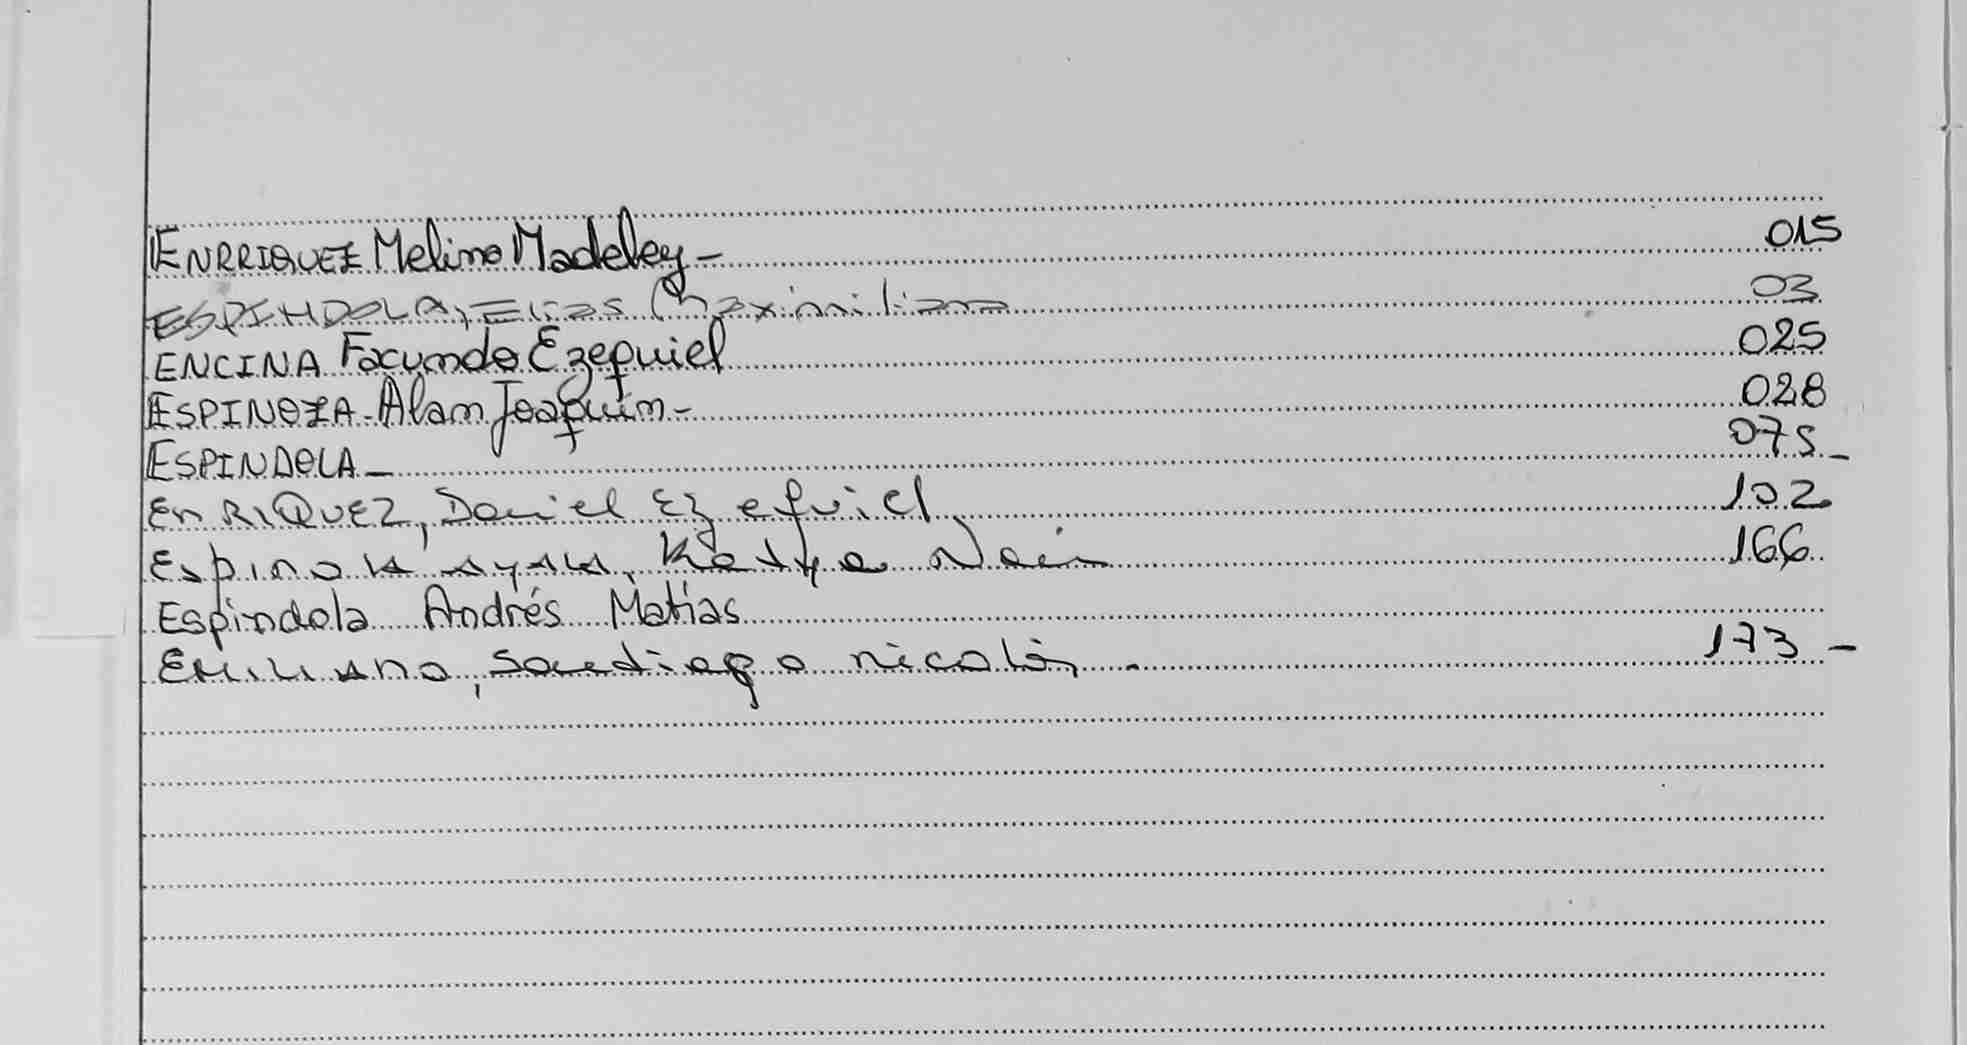 ENRRIQUEZ Melina Madeley - 015
ESPINDOLA, Elias Maximiliano 03
ENCINA Facundo Ezequiel 025
ESPINOZA - Alan Joaquin - 028
ESPINDOLA - 075 -
EnRIQUEZ, Daniel Ezequiel 102
Espinola Ayala, Katya 166
Espindola Andrés Matias
Emiliano, Santiago nicolás - 173 -